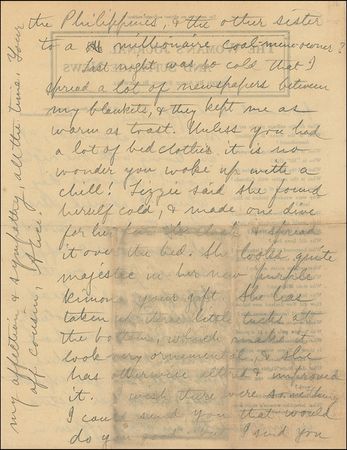 the Philippines, & the other sister
to a millionaire coal-mine-owner?
Last night was so cold that I
spread a lot of newspapers between
my blankets, & they kept me as
warm as toast. Unless you had
a lot of bed clothes, it is no
wonder you woke up with a
chill! Lizzie said she found
herself cold, & made one dive
for her fur cloak & spread
it over the bed. She looks quite
majestic in her new purple
kimono, your gift. She has
taken three little tucks at
the bottom, which makes it
look very ornamental, & she
has otherwise altered & improved
it. I wish there were something
I could send you that would
do you good. But I send you
my affection & sympathy, all the time. Your
aff. cousin,
THE WOMAN'S JOURNAL
AND SUFFRAGE NEWS